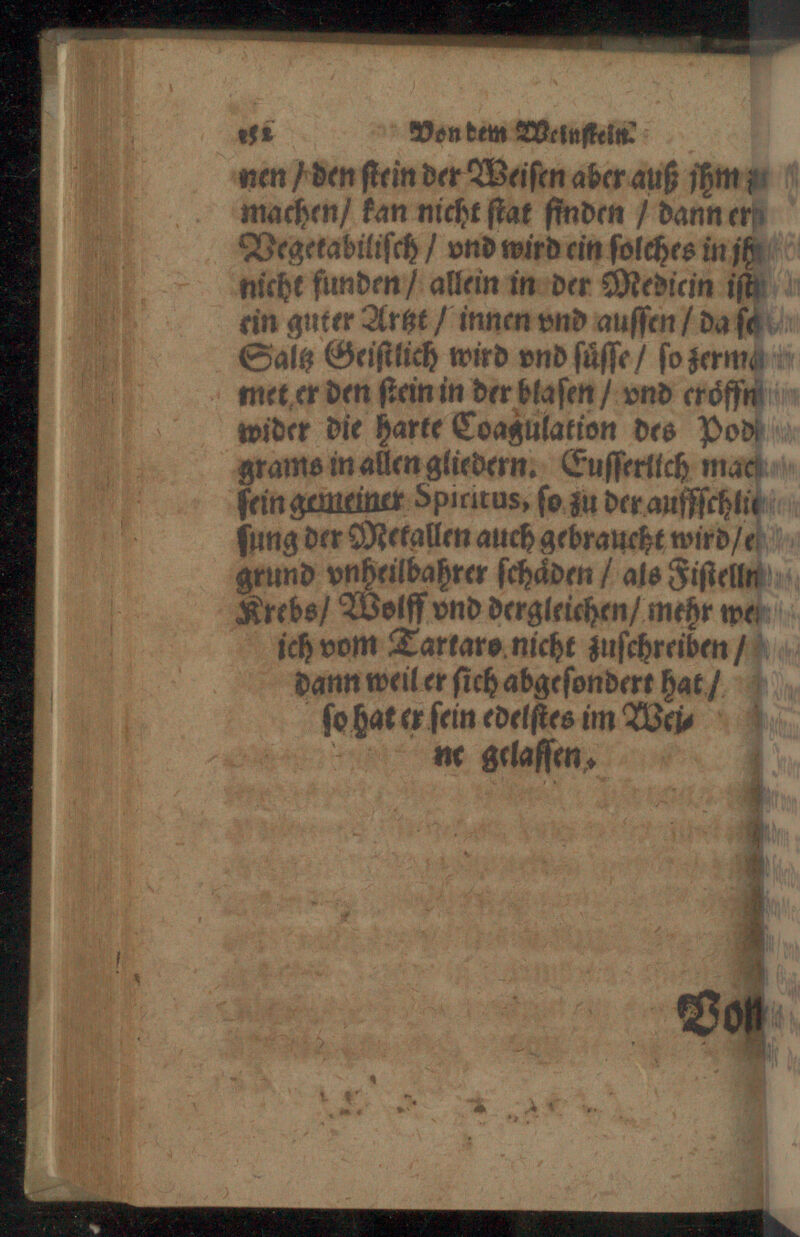 Von dem Weinſtein.
nen / den ſtein der Weiſen aber auß jhm
machen / kan nicht ſtat finden / dann er
Vegetabiliſch / vnd wird ein ſolches in
nicht funden / allein in der Medicin iſt
ein guter Artzt / innen vnd auſſen / da
Saltz Geiſtlich wird vnd ſuͤſſe / ſo
met er den ſtein in der blaſen / vnd
wider die harte Coagulation des Pod
grams in allen gliedern. Euſſerlich
ſein gemeiner Spiritus, ſo zu der
ſung der Metallen auch gebraucht wird /
grund vnheilbahrer ſchaͤden / als
Krebs / Wolff vnd dergleichen / mehr
ich vom Tartaro nicht zuſchreiben /
dann weil er ſich abgeſondert hat /
ſo hat er ſein edelſtes im Wei⸗
ne gelaſſen.
Von